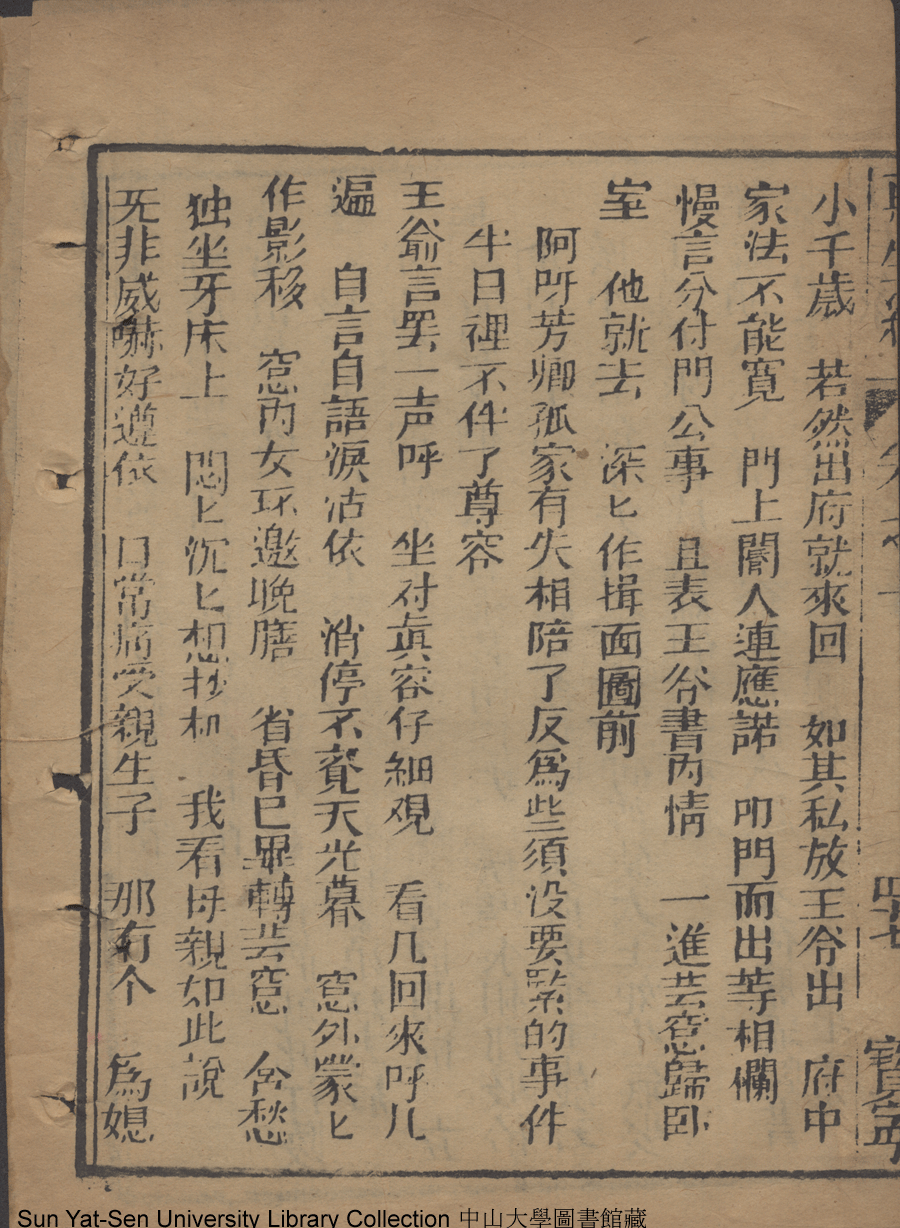 小千歳　若然出府就來回　如其私放王爷出　府中
家法不能寛　門上閽人連應諾　叩門而出等相欄
慢言分付門公事　且表王爷書内情　一進芸窓歸卧
室　他就去　深匕作揖面圖前
阿呀芳卿孤家有失相陪了反爲些須没要緊的事件
半日裡不伴了尊容
王爺言罢一声呼　坐对真容仔細观　看几回來呼几
遍　自言自語淚沾依　消停不覚天光暮　窓外蒙匕
作影移　窓内女环邀晚膳　省昏已畢轉芸窓　含愁
独坐牙床上　悶匕沉匕想　我看母親如此說
无非威嚇好遵依　日常痛受親生子　那有个　爲媳
四七
寶寧
Sun Yat-Sen University Library Collection 中山大學圖書館藏